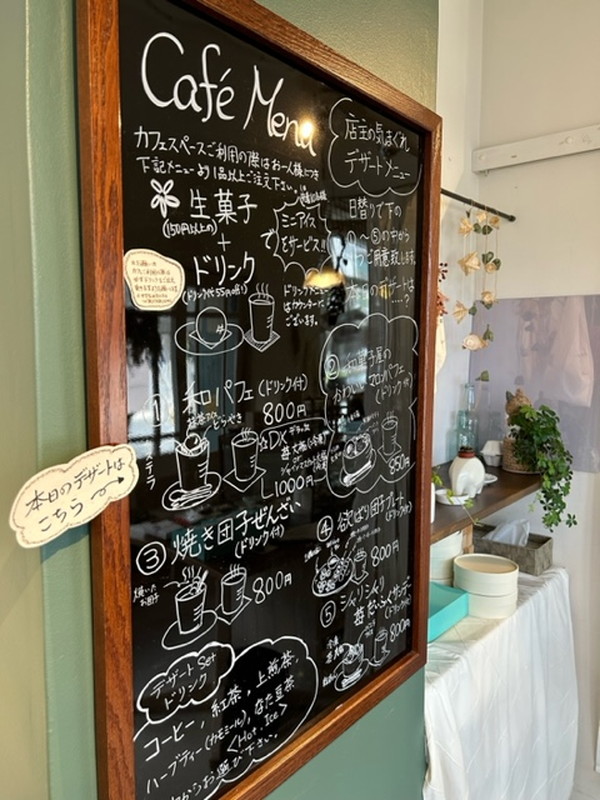 Café Menu
カフェスペースご利用の際はお一人様につき
下記メニューより1品以上ご注文下さい。
生菓子
(150円以上の)
+
ドリンク
(ドリンク代55円引き)
ミニアイス
をサービス!!
で
ドリンクメニュー
はカウンターに
ございます。
店主の気まぐれ
デザートメニュー
日替りで下の
~⑤の中から
ご用意致します。
本日のデザートは
....?
① 和パフェ (ドリンク付)
抹茶アイス
どらやき
800円
カステラ
1000円
② 和菓子屋の
パフェ
(ドリンク付)
850円
本日のデザートは
こちら
③ 焼き団子ぜんざい
(ドリンク付)
焼いた
お団子
800円
④ 欲ばり団子プレート
(ドリンク付)
800円
⑤ シャリシャリ
(ドリンク付)
800円
デザートSet
ドリンク
コーヒー, 紅茶, 上煎茶,
ハーブティー(カモミール), なた豆茶
<Hot, Ice>
からお選び下さい。